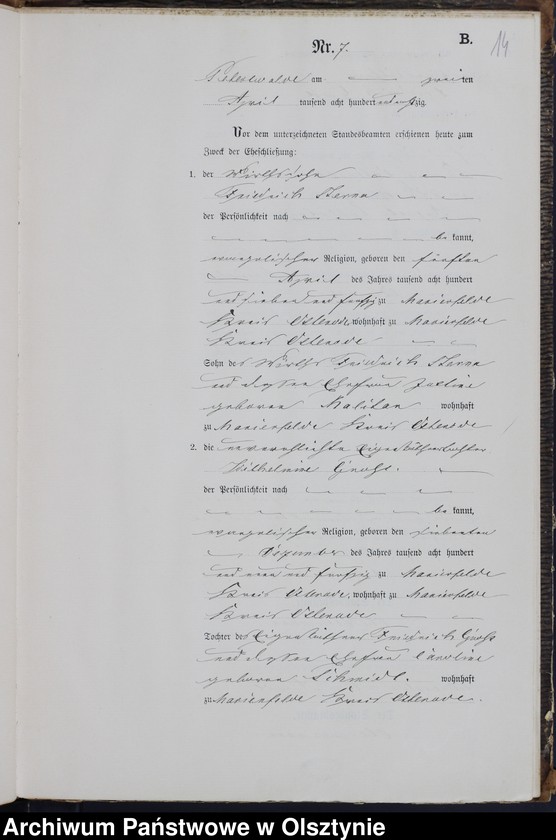 B.
14
Nr. 7.
Peterswalde am zweiten
April tausend acht hundert achtzig
Vor dem unterzeichneten Standesbeamten erschienen heute zum
Zweck der Eheschließung:
1. der Wirthssohn
Friedrich
der Persönlichkeit nach
bekannt,
evangelischer Religion, geboren den fünften
April des Jahres tausend acht hundert
und sieben und fünfzig zu Marienfelde
Kreis Osterode, wohnhaft zu Marienfelde
Kreis Osterode
Sohn des Wirths Friedrich
und dessen Ehefrau
geborenen wohnhaft
zu Marienfelde Kreis Osterode
2. die unverehelichte Eigenkäthnertochter
Wilhelmine Groß.
der Persönlichkeit nach
bekannt,
evangelischer Religion, geboren den siebenten
des Jahres tausend acht hundert
und neun und fünfzig zu Marienfelde
Kreis Osterode, wohnhaft zu Marienfelde
Kreis Osterode
Tochter des Eigenkäthners Friedrich Groß
und dessen Ehefrau Caroline
geborenen Schmidt. wohnhaft
zu Marienfelde Kreis Osterode.
Archiwum Państwowe w Olsztynie